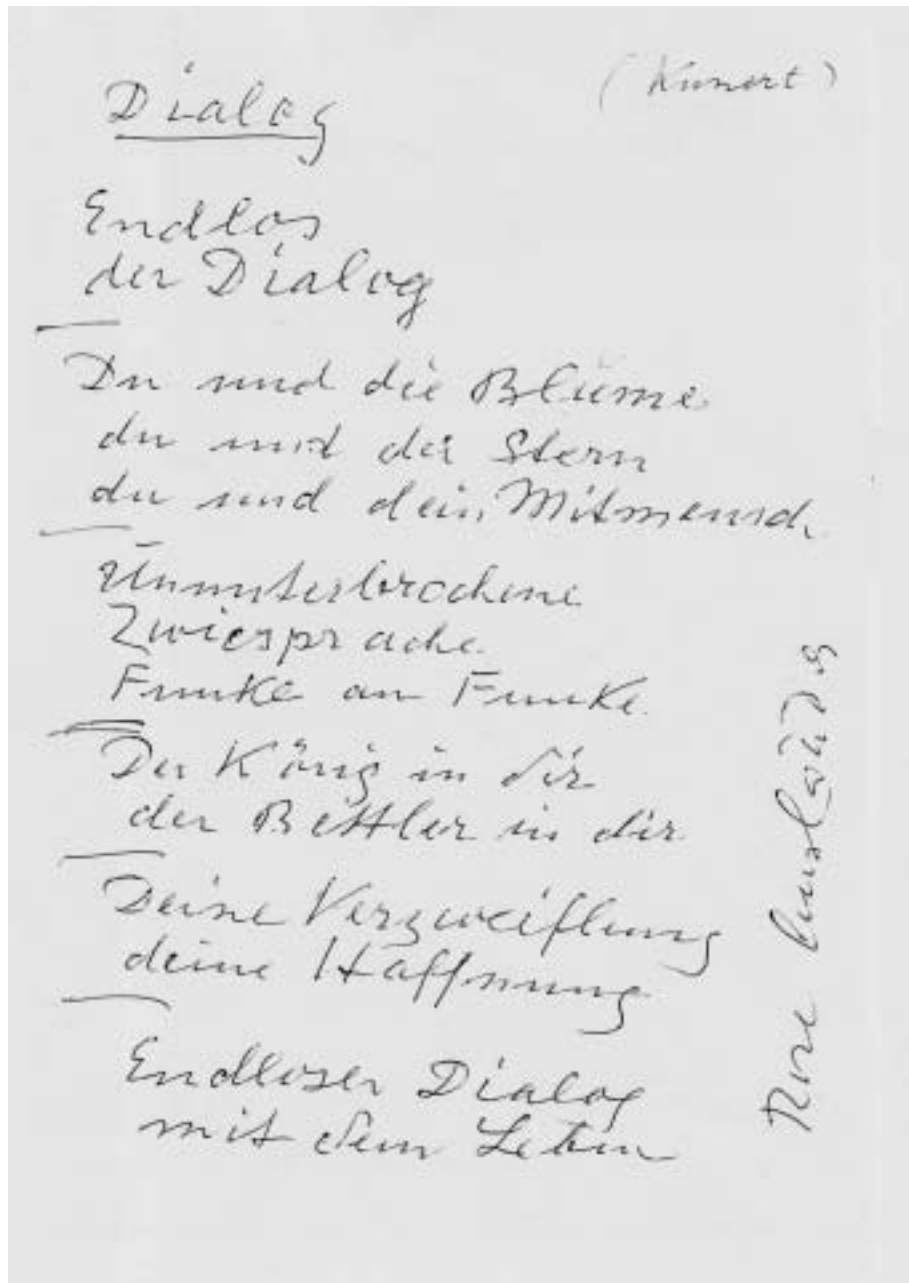 Dialog
(Kunert)
Endlos
der Dialog
Du und die Blume
du und der Stern
du und dein Mitmensch
Ununterbrochene
Zwiesprache
Funke an Funke
Der König in dir
der Bettler in dir
Deine Verzweiflung
deine Hoffnung
Endloser Dialog
mit dem Leben
Rose Ausländer